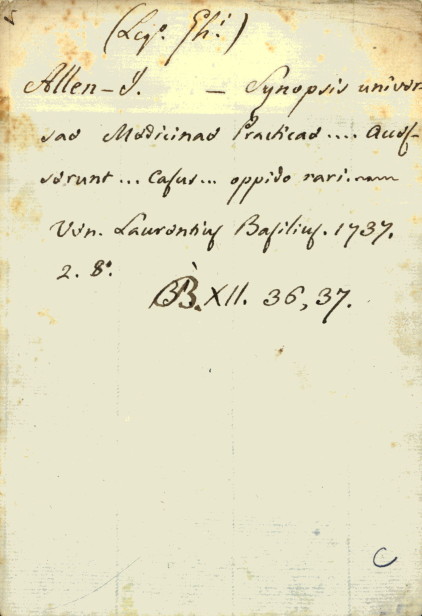 (Leg.º Gh.i)
Allen-J. — Synopsis univer-
sae Medicinae Practicae .... Acces-
serunt ... Casus ... oppido rari.
Ven. Laurentius Basilius. 1737.
2. 8º.
BB. XII. 36, 37.
C